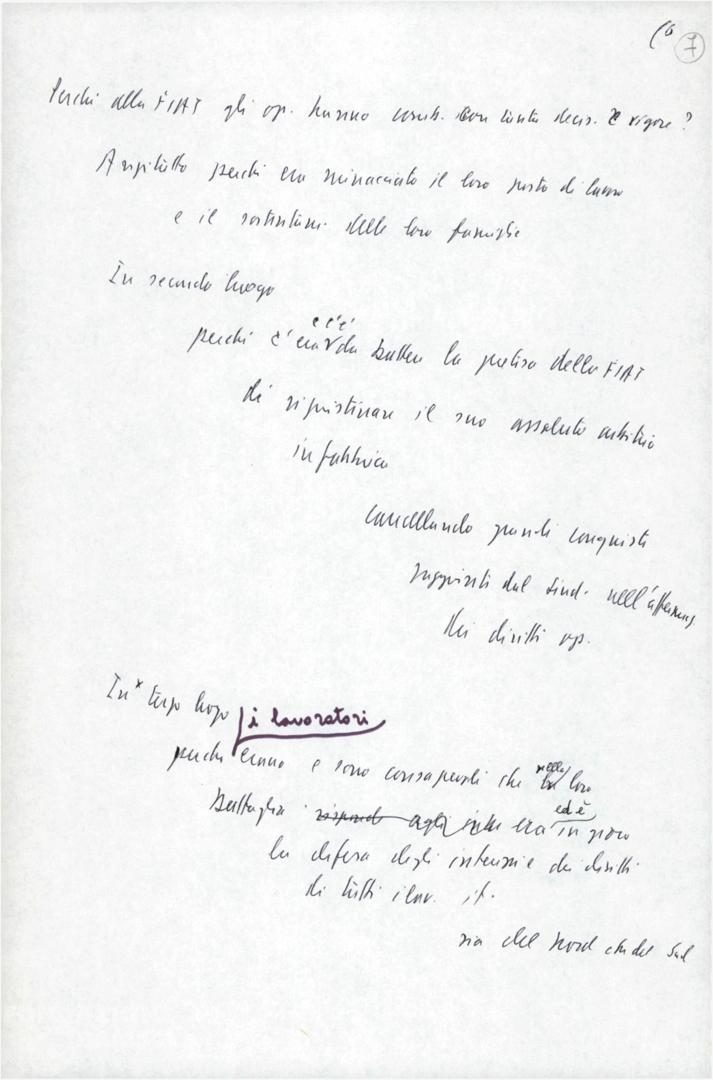 16 7
Perché alla FIAT gli op. hanno comb. con tanta decis. e vigore?
Anzitutto perché era minacciato il loro posto di lavoro
e il sostentam. delle loro famiglie
In secondo luogo
e c'è
perché c'era da battere la pretesa della FIAT
di ripristinare il suo assoluto arbitrio
in fabbrica
cancellando grandi conquiste
raggiunte dal Sind. nell'affermaz.
dei diritti op.
In terzo luogo i lavoratori
perché erano e sono consapevoli che nella loro
ed è
battaglia risponde agli era in gioco
la difesa degli interessi e dei diritti
di tutti i lav. it.
sia del Nord che del Sud